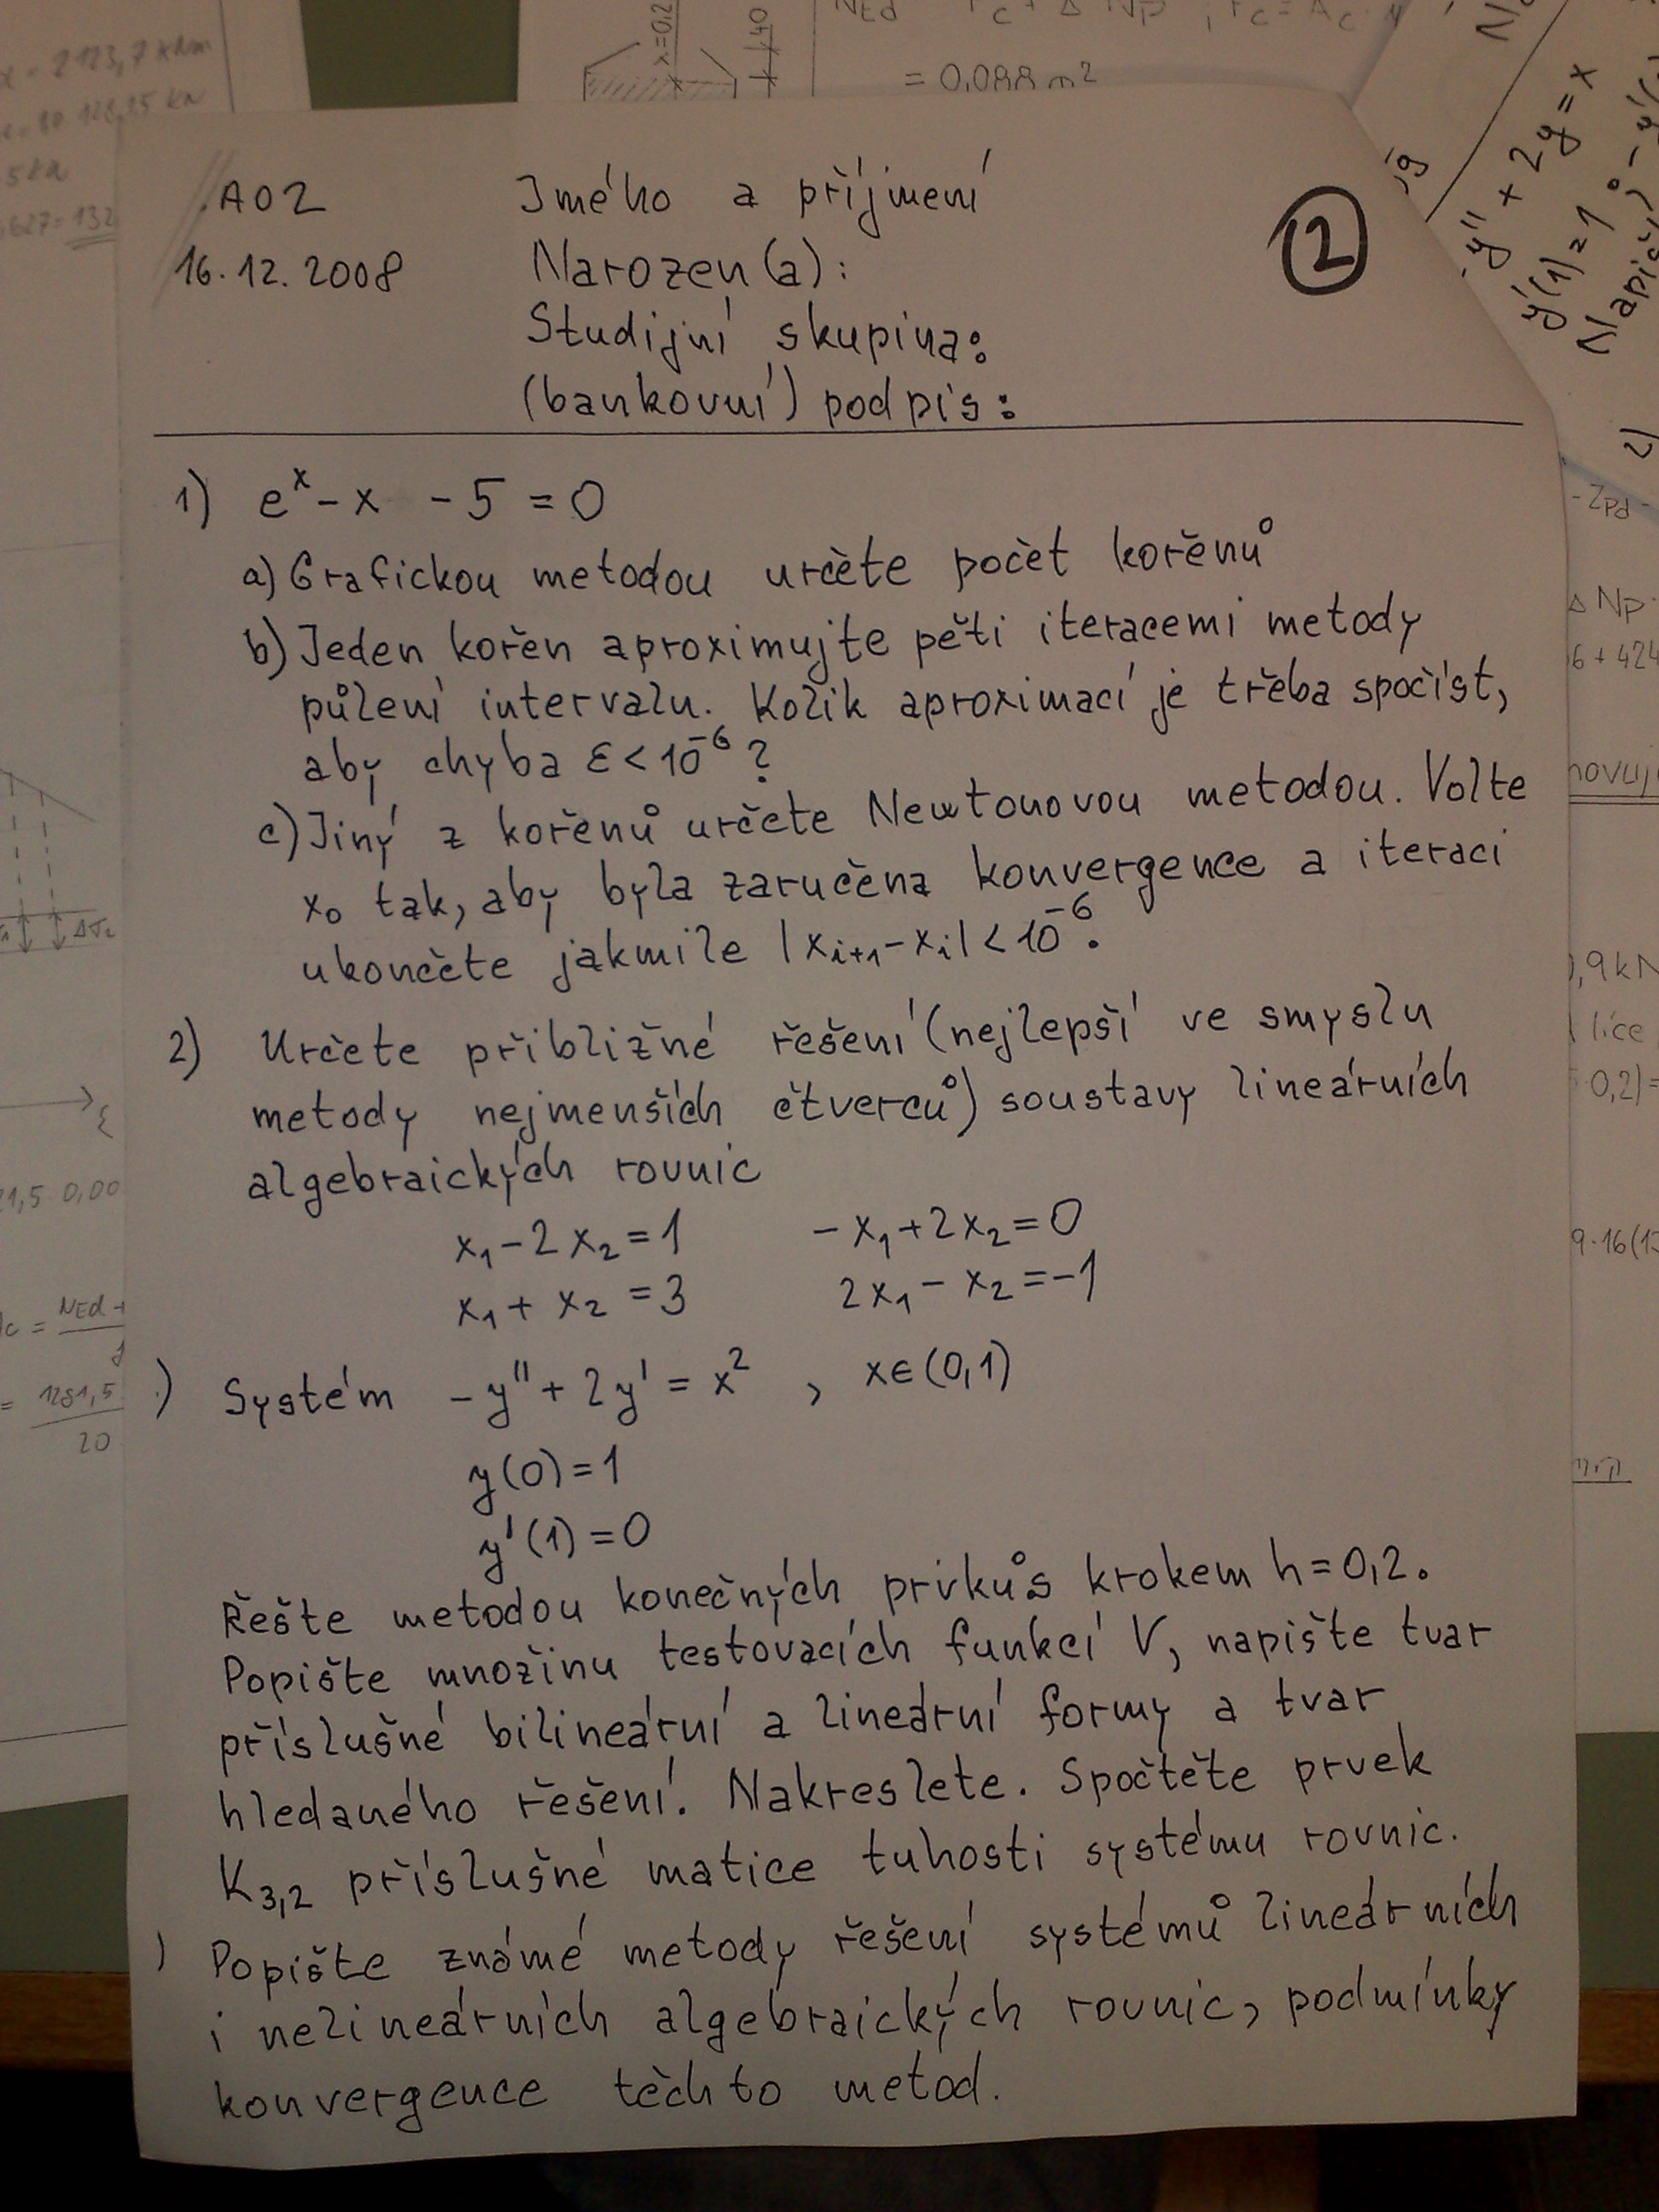 A02 Jmého a příjmení
②
16.12.2008 Narozen(a):
Studijní skupina:
(bankovní) podpis:
1) e^x - x - 5 = 0
a) Grafickou metodou určete počet kořenů
b) Jeden kořen aproximujte pěti iteracemi metody
půlení intervalu. Kolik aproximací je třeba spočíst,
aby chyba ε < 10^-6 ?
c) Jiný z kořenů určete Newtonovou metodou. Volte
x₀ tak, aby byla zaručena konvergence a iteraci
ukončete jakmile |x_{i+1} - x_i| < 10^-6.
2) Určete přibližné řešení (nejlepší ve smyslu
metody nejmenších čtverců) soustavy lineárních
algebraických rovnic
x₁ - 2x₂ = 1 -x₁ + 2x₂ = 0
x₁ + x₂ = 3 2x₁ - x₂ = -1
) Systém -y'' + 2y' = x² , x∈(0,1)
y(0) = 1
y'(1) = 0
Řešte metodou konečných prvků s krokem h = 0,2.
Popište množinu testovacích funkcí V, napište tvar
příslušné bilineární a lineární formy a tvar
hledaného řešení. Nakreslete. Spočtěte prvek
K₃,₂ příslušné matice tuhosti systému rovnic.
) Popište známé metody řešení systémů lineárních
i nelineárních algebraických rovnic, podmínky
konvergence těchto metod.
= 0,088 m²
x=0,2
40
-y'' + 2y = x
y'(1) = 1
2)
ΔNp
9,9 kN
líce
0,2) =
21,5 0,00
1281,5
20